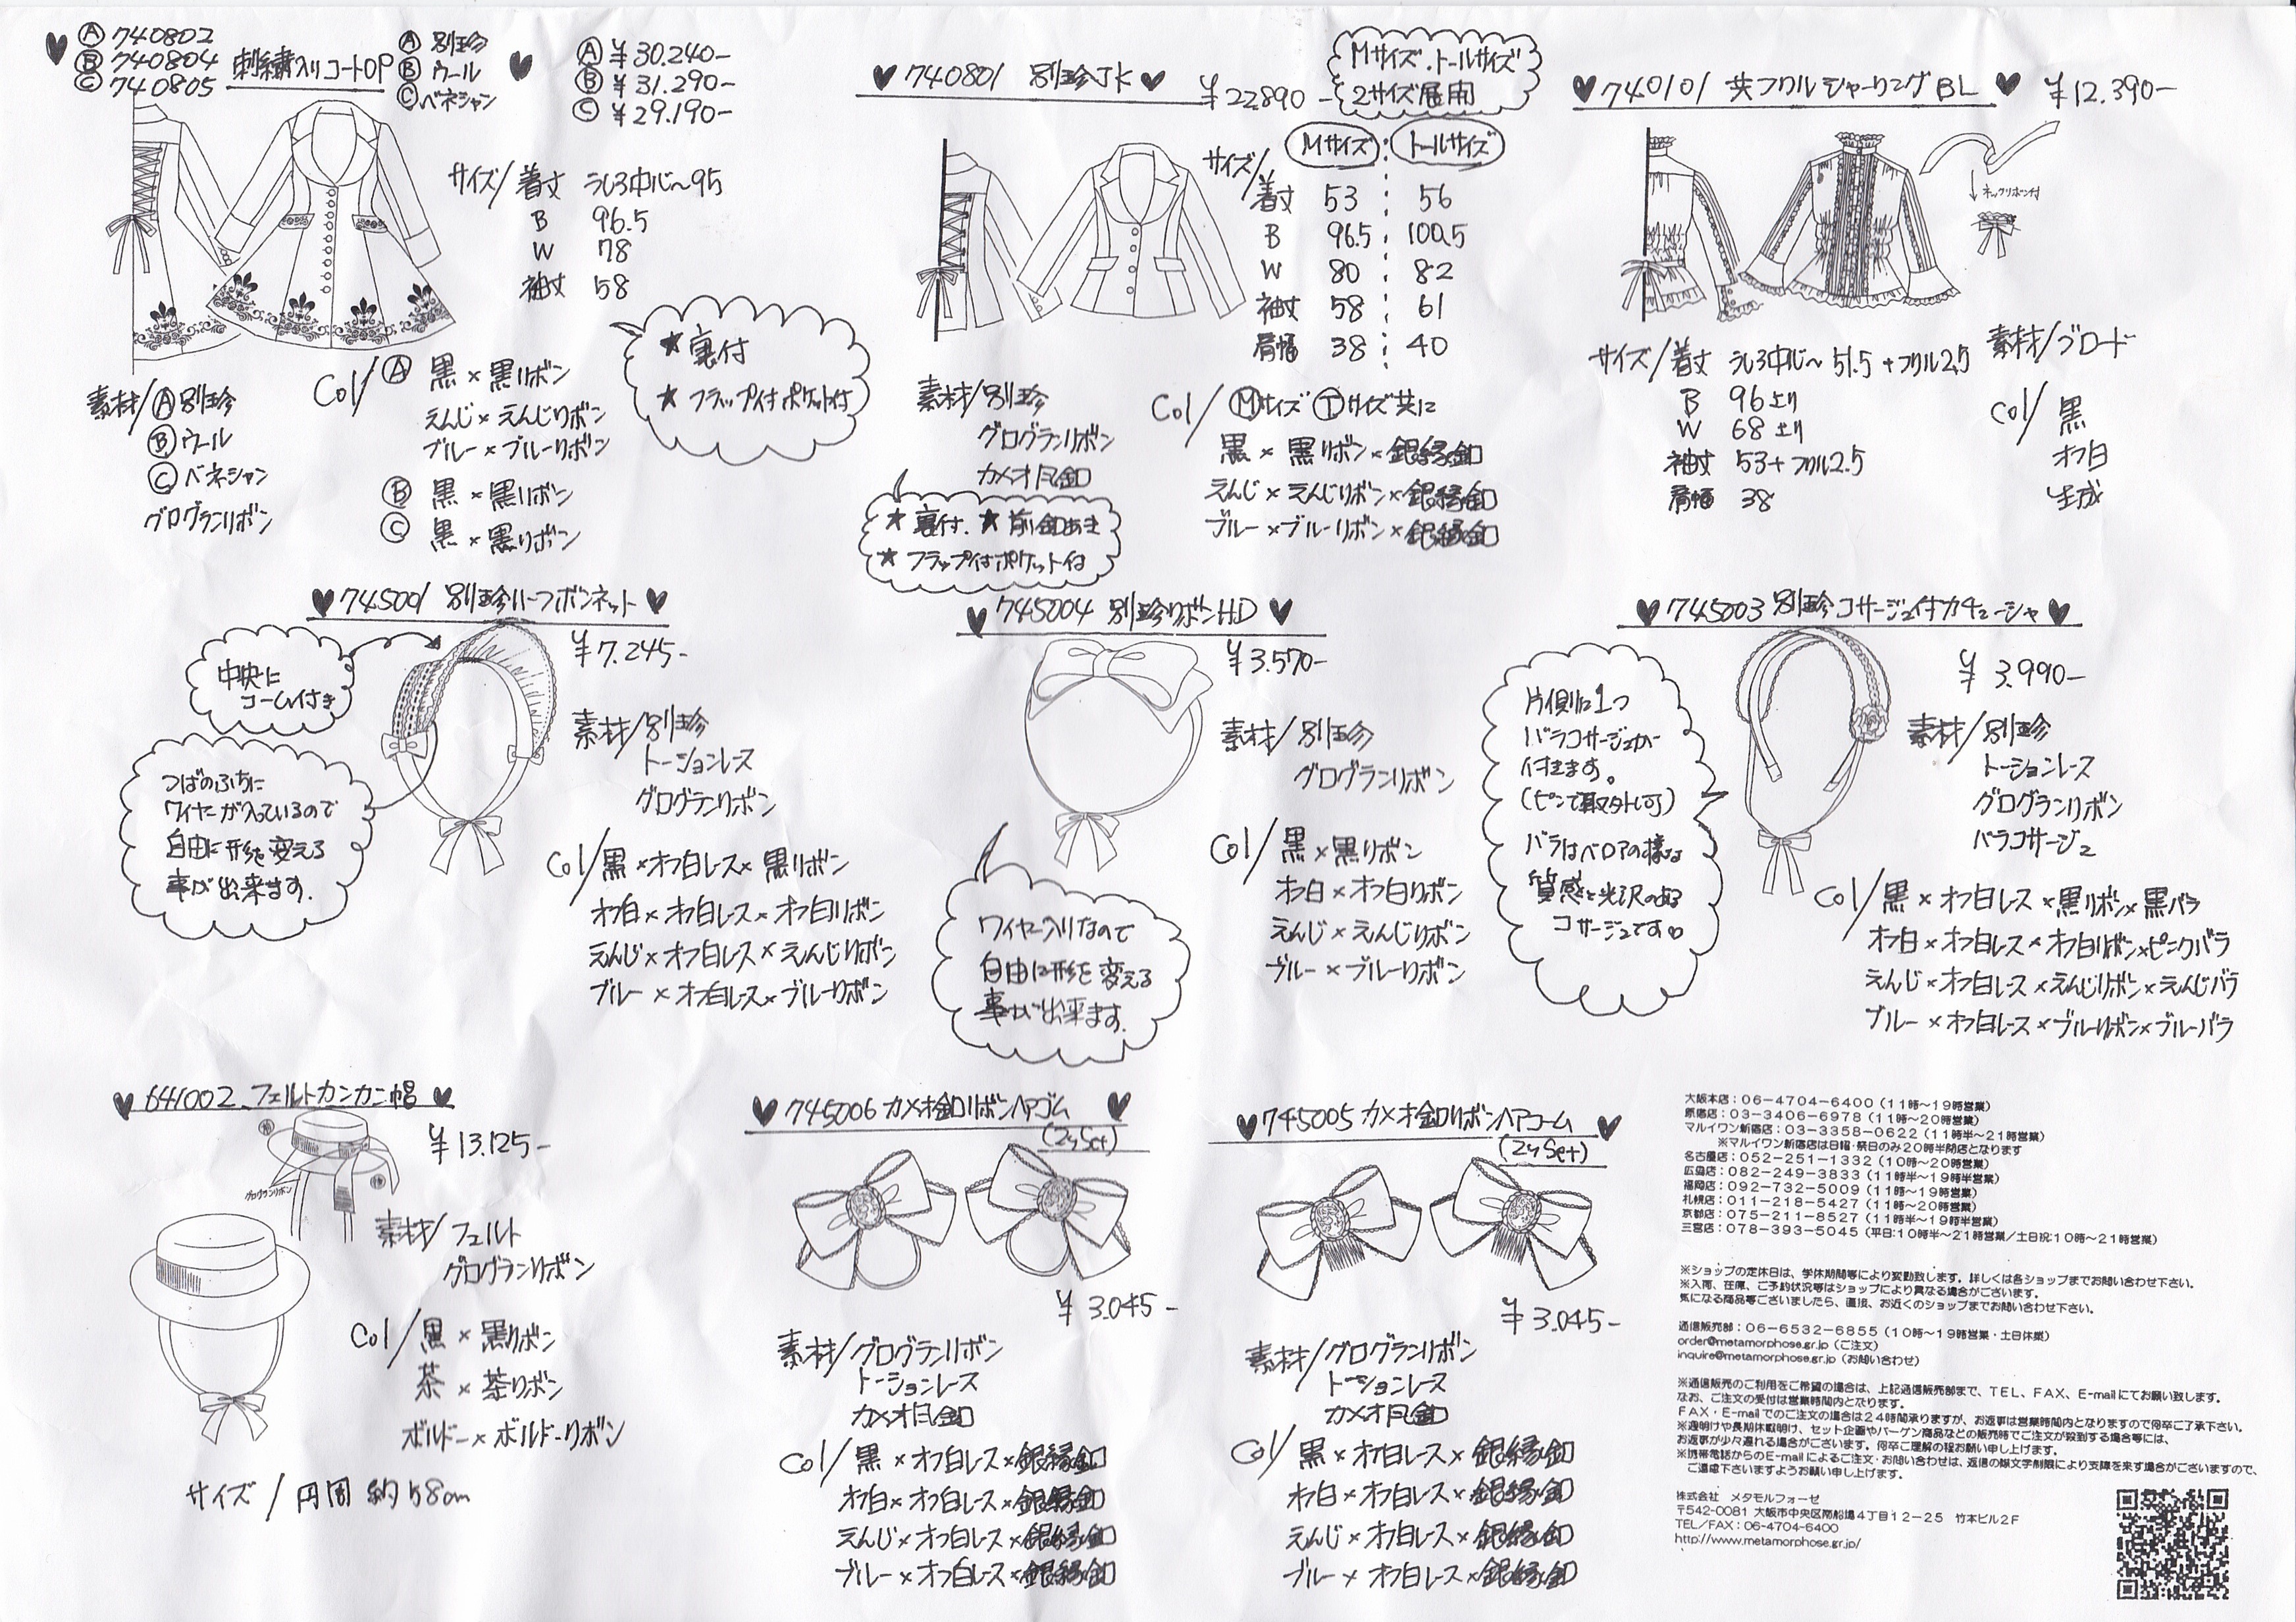 Ⓐ 740802
Ⓑ 740804
Ⓒ 740805
刺繍入りコートOP
Ⓐ 別珍
Ⓑ ウール
Ⓒ ベネシャン
Ⓐ ¥30.240-
Ⓑ ¥31.290-
Ⓒ ¥29.190-
サイズ/着丈 うしろ中心〜95
B 96.5
W 78
袖丈 58
★裏付
★フラップ付ポケット付
素材/Ⓐ別珍
Ⓑウール
Ⓒベネシャン
グログランリボン
Col/Ⓐ 黒×黒リボン
えんじ×えんじリボン
ブルー×ブルーリボン
Ⓑ 黒×黒リボン
Ⓒ 黒×黒リボン
740801 別珍JK
¥22890-
Mサイズ.トールサイズ
2サイズ展開
サイズ/ Mサイズ : トールサイズ
着丈 53 : 56
B 96.5 : 100.5
W 80 : 82
袖丈 58 : 61
肩幅 38 : 40
素材/別珍
グログランリボン
カメオ風釦
★裏付.★前釦あき
★フラップ付ポケット付
Col/ⓂサイズⓉサイズ共に
黒×黒リボン×銀縁釦
えんじ×えんじリボン×銀縁釦
ブルー×ブルーリボン×銀縁釦
740101 共フリルシャーリングBL
¥12.390-
ネックリボン付
サイズ/着丈 うしろ中心〜51.5+フリル2.5
B 96上り
W 68上り
袖丈 53+フリル2.5
肩幅 38
素材/ブロード
Col/黒
オフ白
生成
745001 別珍ハーフボンネット
¥7.245-
中央に
コーム付き
つばのふちに
ワイヤーが入っているので
自由に形を変える
事が出来ます.
素材/別珍
トーションレース
グログランリボン
Col/黒×オフ白レース×黒リボン
オフ白×オフ白レース×オフ白リボン
えんじ×オフ白レース×えんじリボン
ブルー×オフ白レース×ブルーリボン
745004 別珍リボンHD
¥3.570-
素材/別珍
グログランリボン
Col/黒×黒リボン
オフ白×オフ白リボン
えんじ×えんじリボン
ブルー×ブルーリボン
ワイヤー入りなので
自由に形を変える
事が出来ます.
745003 別珍コサージュ付カチューシャ
¥3.990-
片側に1つ
バラコサージュが
付きます。
(ピンで取外し可)
バラはベロアの様な
質感と光沢のある
コサージュです♡
素材/別珍
トーションレース
グログランリボン
バラコサージュ
Col/黒×オフ白レース×黒リボン×黒バラ
オフ白×オフ白レース×オフ白リボン×ピンクバラ
えんじ×オフ白レース×えんじリボン×えんじバラ
ブルー×オフ白レース×ブルーリボン×ブルーバラ
641002 フェルトカンカン帽
¥13.125-
グログランリボン
素材/フェルト
グログランリボン
Col/黒×黒リボン
茶×茶リボン
ボルドー×ボルドーリボン
サイズ/円周 約58cm
745006 カメオ釦リボンヘアゴム
(2ヶSet)
¥3.045-
素材/グログランリボン
トーションレース
カメオ風釦
Col/黒×オフ白レース×銀縁釦
オフ白×オフ白レース×銀縁釦
えんじ×オフ白レース×銀縁釦
ブルー×オフ白レース×銀縁釦
745005 カメオ釦リボンヘアコーム
(2ヶSet)
¥3.045-
素材/グログランリボン
トーションレース
カメオ風釦
Col/黒×オフ白レース×銀縁釦
オフ白×オフ白レース×銀縁釦
えんじ×オフ白レース×銀縁釦
ブルー×オフ白レース×銀縁釦
大阪本店：06-4704-6400（11時〜19時営業）
原宿店：03-3406-6978（11時〜20時営業）
マルイワン新宿店：03-3358-0622（11時半〜21時営業）
※マルイワン新宿店は日曜・祭日のみ20時半閉店となります
名古屋店：052-251-1332（10時〜20時営業）
広島店：082-249-3833（11時半〜19時半営業）
福岡店：092-732-5009（11時〜19時営業）
札幌店：011-218-5427（11時〜20時営業）
京都店：075-211-8527（11時半〜19時半営業）
三宮店：078-393-5045（平日:10時半〜21時営業／土日祝:10時〜21時営業）
※ショップの定休日は、学休期間等により変動致します。詳しくは各ショップまでお問い合わせ下さい。
※入荷、在庫、ご予約状況等はショップにより異なる場合がございます。
気になる商品等ございましたら、直接、お近くのショップまでお問い合わせ下さい。
通信販売部：06-6532-6855（10時〜19時営業・土日休業）
order@metamorphose.gr.jp（ご注文）
inquire@metamorphose.gr.jp（お問い合わせ）
※通信販売のご利用をご希望の場合は、上記通信販売部まで、TEL、FAX、E-mailにてお願い致します。
なお、ご注文の受付は営業時間内となります。
FAX・E-mailでのご注文の場合は24時間承りますが、お返事は営業時間内となりますので何卒ご了承下さい。
※週明けや長期休暇明け、セット企画やバーゲン商品などの販売時でご注文が殺到する場合等には、
お返事が少々遅れる場合がございます。何卒ご理解の程お願い申し上げます。
※携帯電話からのE-mailによるご注文・お問い合わせは、返信の際文字制限により支障を来す場合がございますので、
ご遠慮下さいますようお願い申し上げます。
株式会社 メタモルフォーゼ
〒542-0081 大阪市中央区南船場4丁目12-25 竹本ビル2F
TEL/FAX：06-4704-6400
http://www.metamorphose.gr.jp/